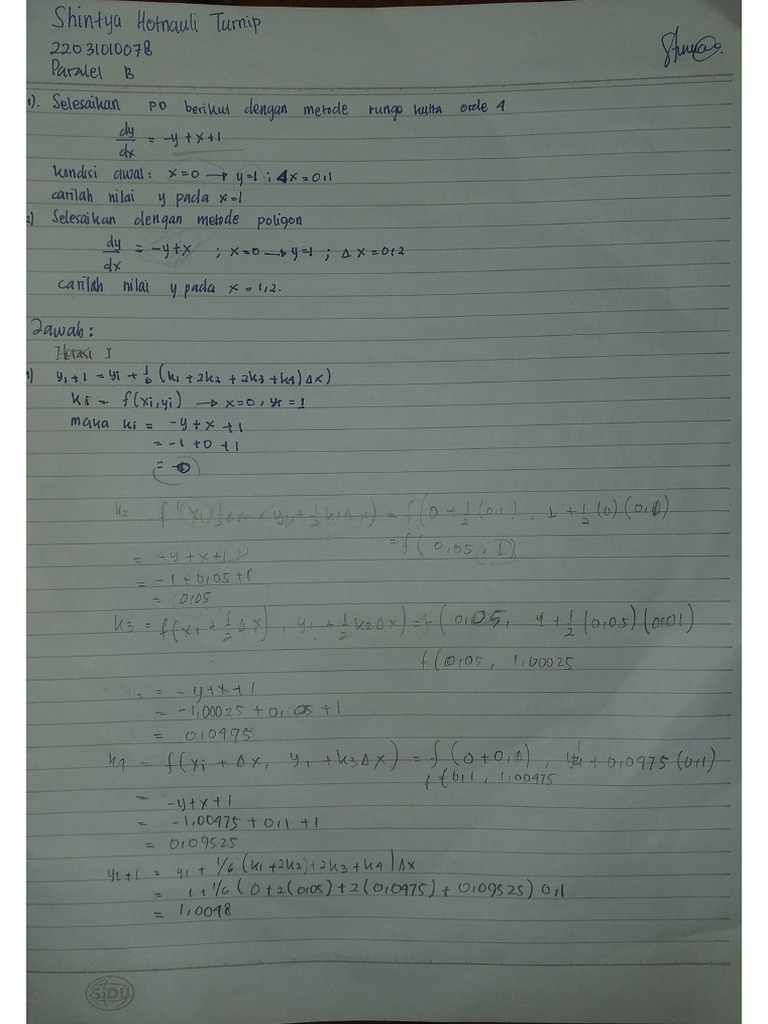 Shintya Hotnauli Turnip
22031010078
Paralel B
1). Selesaikan PD berikut dengan metode rungo kutta orde 4
dy/dx = -y + x + 1
kondisi awal : x=0 → y=1 ; Δx = 0,1
carilah nilai y pada x=1
2) Selesaikan dengan metode poligon
dy/dx = -y+x ; x=0 → y=1 ; Δx = 0,2
carilah nilai y pada x = 1,2.
Jawab :
Iterasi I
1) yi+1 = yi + 1/6 (k1 + 2k2 + 2k3 + k4) Δx)
ki = f(xi,yi) → x=0, yi = 1
maka ki = -y + x + 1
= -1 + 0 + 1
= 0
k2 = f(0 + 1/2 (0,1) , 1 + 1/2 (0) (0,1)
= f(0,05 , 1)
= -y + x + 1
= -1 + 0,05 + 1
= 0,05
k3 = f(xi + 1/2 Δx) , yi + 1/2 k2 Δx) = f(0,05, 1 + 1/2 (0,05) (0,01)
f(0,05, 1,00025
= -y + x + 1
= -1,00025 + 0,05 + 1
= 0,0475
k4 = f(xi + Δx, yi + k3 Δx) = f(0+0,1) , + 0,0475 (0,1)
f(0,1, 1,00475
= -y + x + 1
= -1,00475 + 0,1 + 1
= 0,09525
yi+1 = yi + 1/6 (k1 + 2k2) + 2k3 + k4) Δx
= 1 + 1/6 (0 + 2(0,05) + 2(0,0475) + 0,09525) 0,1
= 1,0048
SIDU